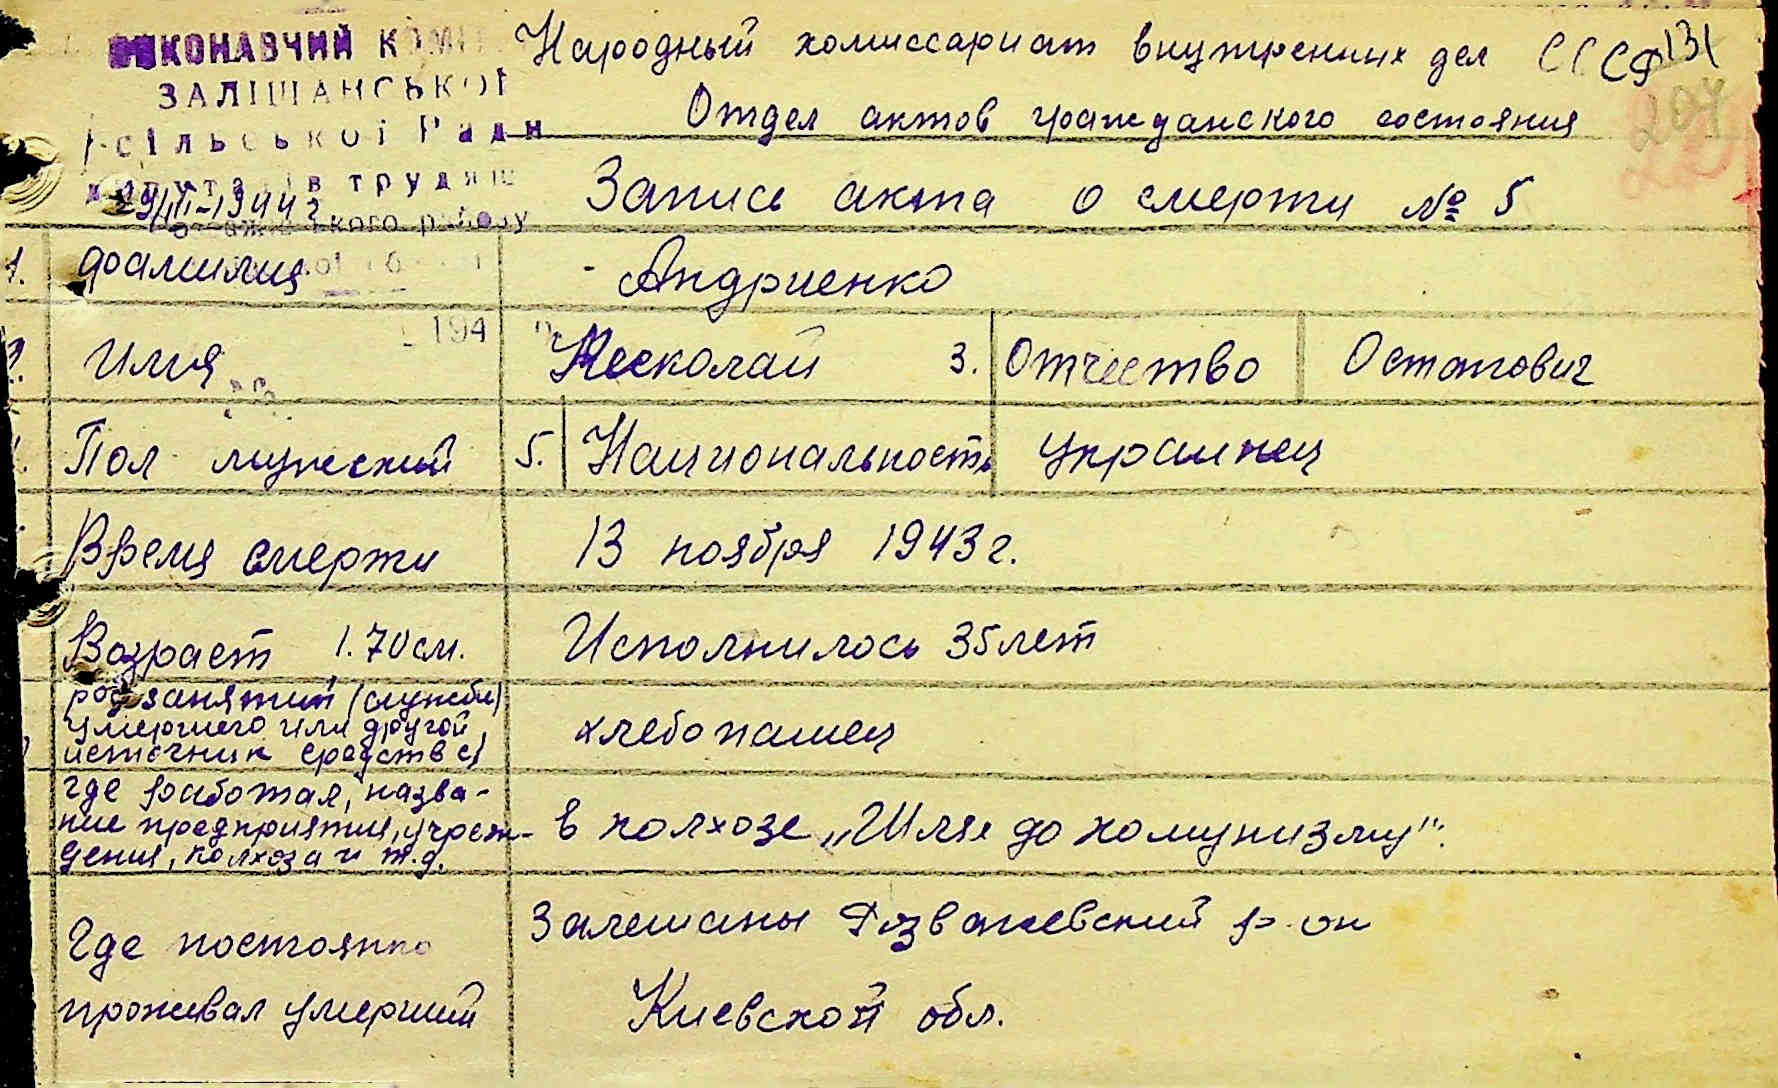 ВИКОНАВЧИЙ КОМІ
ЗАЛІШАНСЬКОЇ
сільської Ради
депутатів трудящ
29/III-1944 г
ського району
194
Народный комиссариат внутренних дел СССР
131
204
Отдел актов гражданского состояния
Запись акта о смерти № 5
1. Фамилия Андриенко
2. Имя Николай 3. Отчество Остапович
Пол мужеский 5. Национальность украинец
Время смерти 13 ноября 1943 г.
Возраст 1.70 см. Исполнилось 35 лет
род занятий (службы)
умершего или другой
источник средств с
хлебопашец
где работал, назва-
ние предприятия, учреж-
дения, колхоза и т.д.
в колхозе „Шлях до комунизму".
Где постоянно
проживал умерший
Залешаны Розважевский р-он
Киевской обл.